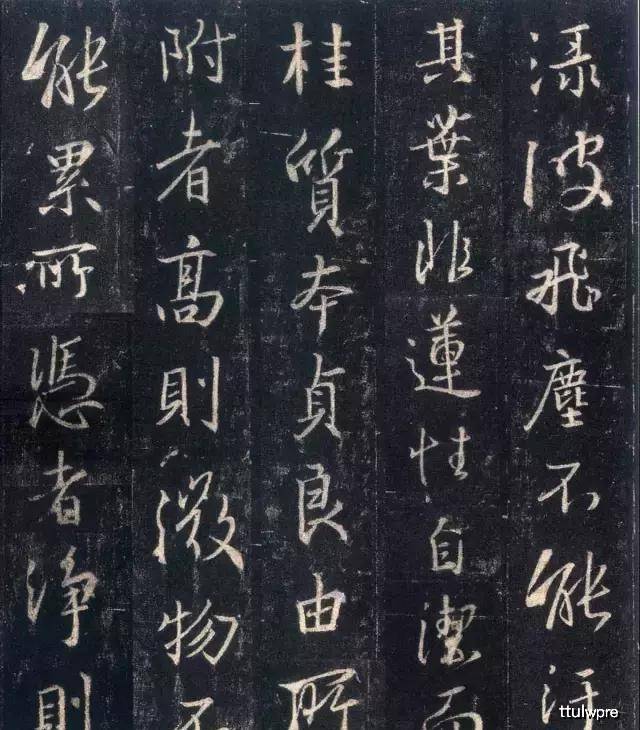 渌波飛塵不能汙
其葉非蓮性自潔而
桂質本貞良由所
附者高則微物不
能累所憑者淨則
ttulwpre